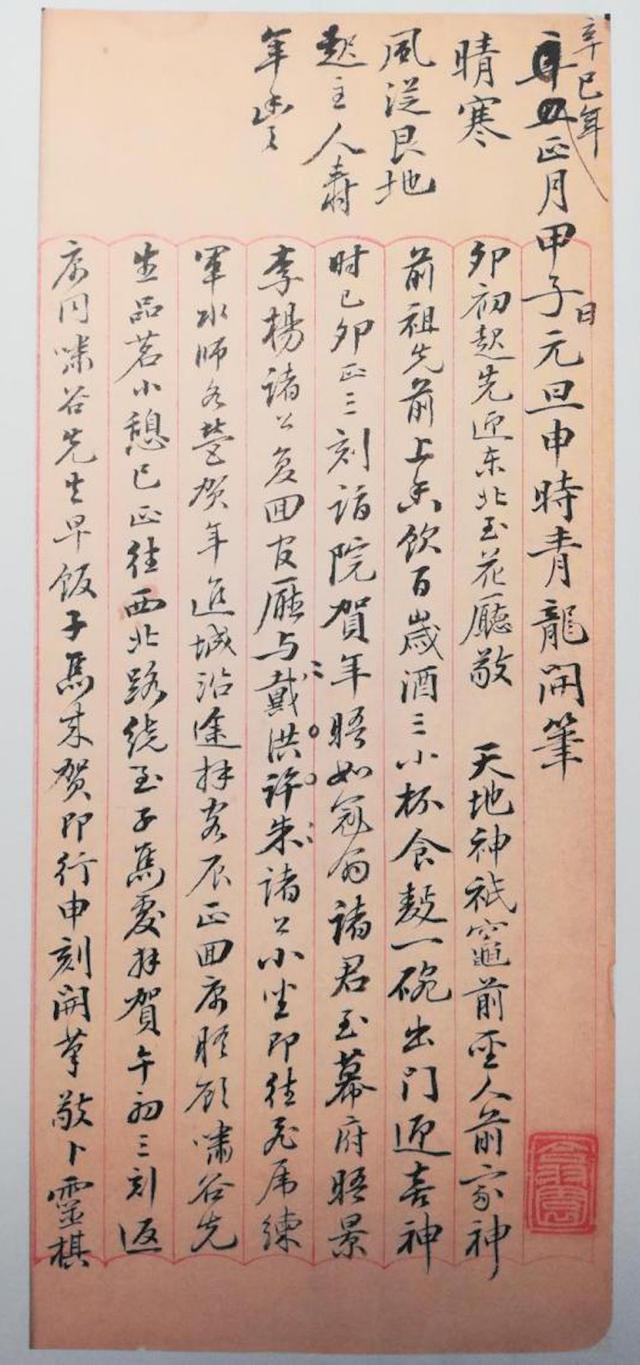 辛巳年
正月甲子日元旦申時青龍開筆
晴寒
風從艮地
起主人壽
年豐
卯初起先迎东北至花廳敬 天地神祇竈前聖人前家神
前祖先前上香飲百歲酒三小杯食麪一碗出門迎喜神
时已卯正三刻詣院賀年晤如冠翁諸君至幕府晤景
李楊諸公复回官廳与戴洪許朱諸公小坐即往飞虎練
軍水师各營贺年進城沿途拜客辰正回寓晤顧嘯谷先
生品茗小憩巳正往西北路绕至子馬處拜賀午初三刻返
寓同嘯谷先生早饭子馬来贺即行申刻開筆敬卜靈棋